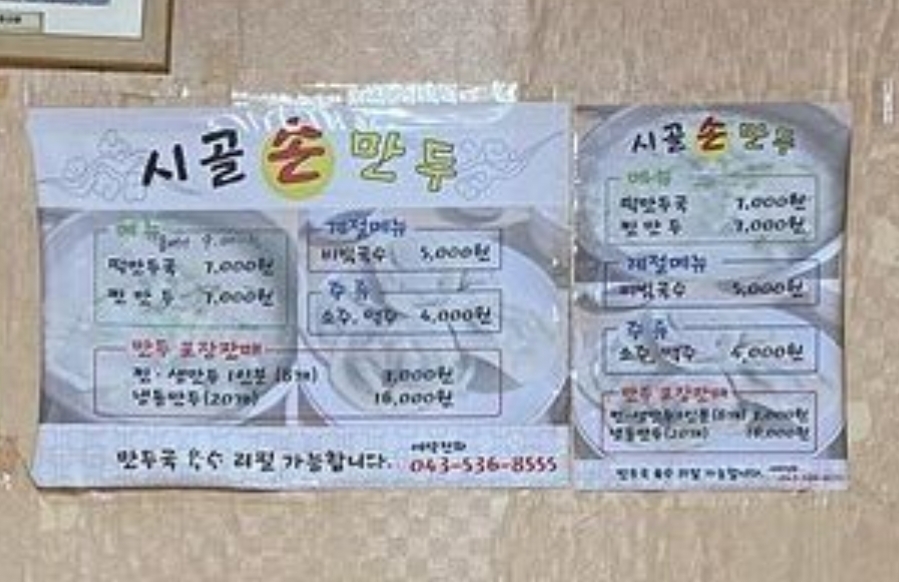 시골 손 만두
메뉴
떡만두국 7,000원
찐만두 7,000원
계절메뉴
비빔국수 5,000원
주류
소주, 맥주 4,000원
만두 포장판매
찐·생만두 1인분 (8개)
냉동만두(20개) 16,000원
만두국 육수 리필 가능합니다.
예약전화
043-536-8555
시골 손 만두
메뉴
떡만두국 7,000원
찐만두 7,000원
계절메뉴
비빔국수 5,000원
주류
소주, 맥주 4,000원
만두 포장판매
냉동만두(20개)
만두국 육수 리필 가능합니다.